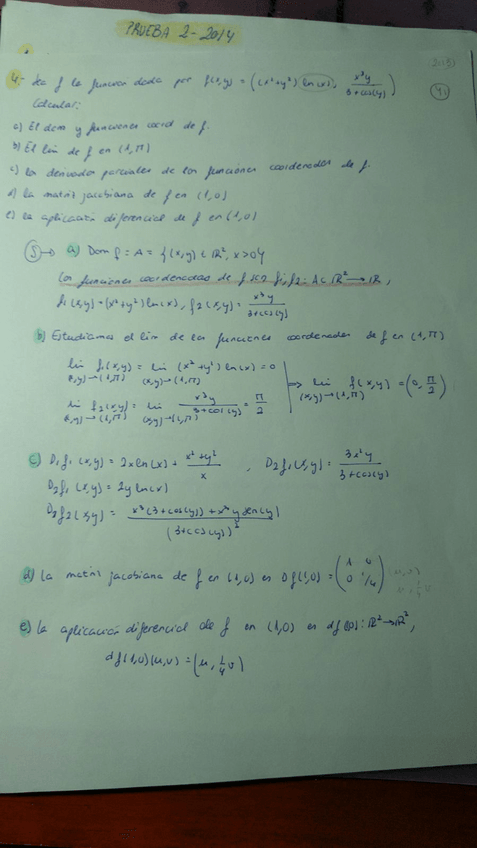 PRUEBA 2-2014
4. Sea f la función dada por f(x,y) = ((x²+y²) ln(x), x³y / 3+cos(y))
Calcular:
a) El dom y funciones coord de f.
b) El lim de f en (1,π)
c) las derivadas parciales de las funciones coordenadas de f.
d) la matriz jacobiana de f en (1,0)
e) la aplicación diferencial de f en (1,0)
S → a) Dom f = A = {(x,y) ∈ ℝ², x>0}
Las funciones coordenadas de f son f1, f2: A⊂ℝ² → ℝ,
f1(x,y) = (x²+y²) ln(x), f2(x,y) = x³y / 3+cos(y)
b) Estudiamos el lim de las funciones coordenadas de f en (1,π)
lim f1(x,y) = lim (x²+y²) ln(x) = 0
(x,y)→(1,π) (x,y)→(1,π)
⟹ lim f(x,y) = (0, π/2)
(x,y)→(1,π)
lim f2(x,y) = lim x³y / 3+cos(y) = π/2
(x,y)→(1,π) (x,y)→(1,π)
c) D1f1(x,y) = 2x ln(x) + x²+y² / x , D2f1(x,y) = 3x²y / 3+cos(y)
D2f1(x,y) = 2y ln(x)
D2f2(x,y) = x³(3+cos(y)) + x³y sen(y) / (3+cos(y))²
d) La matriz jacobiana de f en (1,0) es Df(1,0) = (1 0
0 1/4)
e) la aplicación diferencial de f en (1,0) es df(1,0): ℝ²→ℝ²,
df(1,0)(u,v) = (u, 1/4 v)